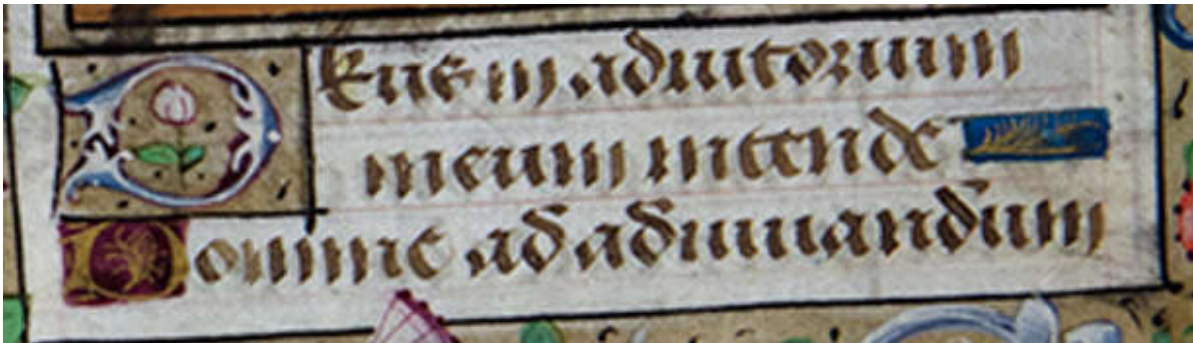 Deus in adiutorium
meum intende
Domine ad adiuuandum